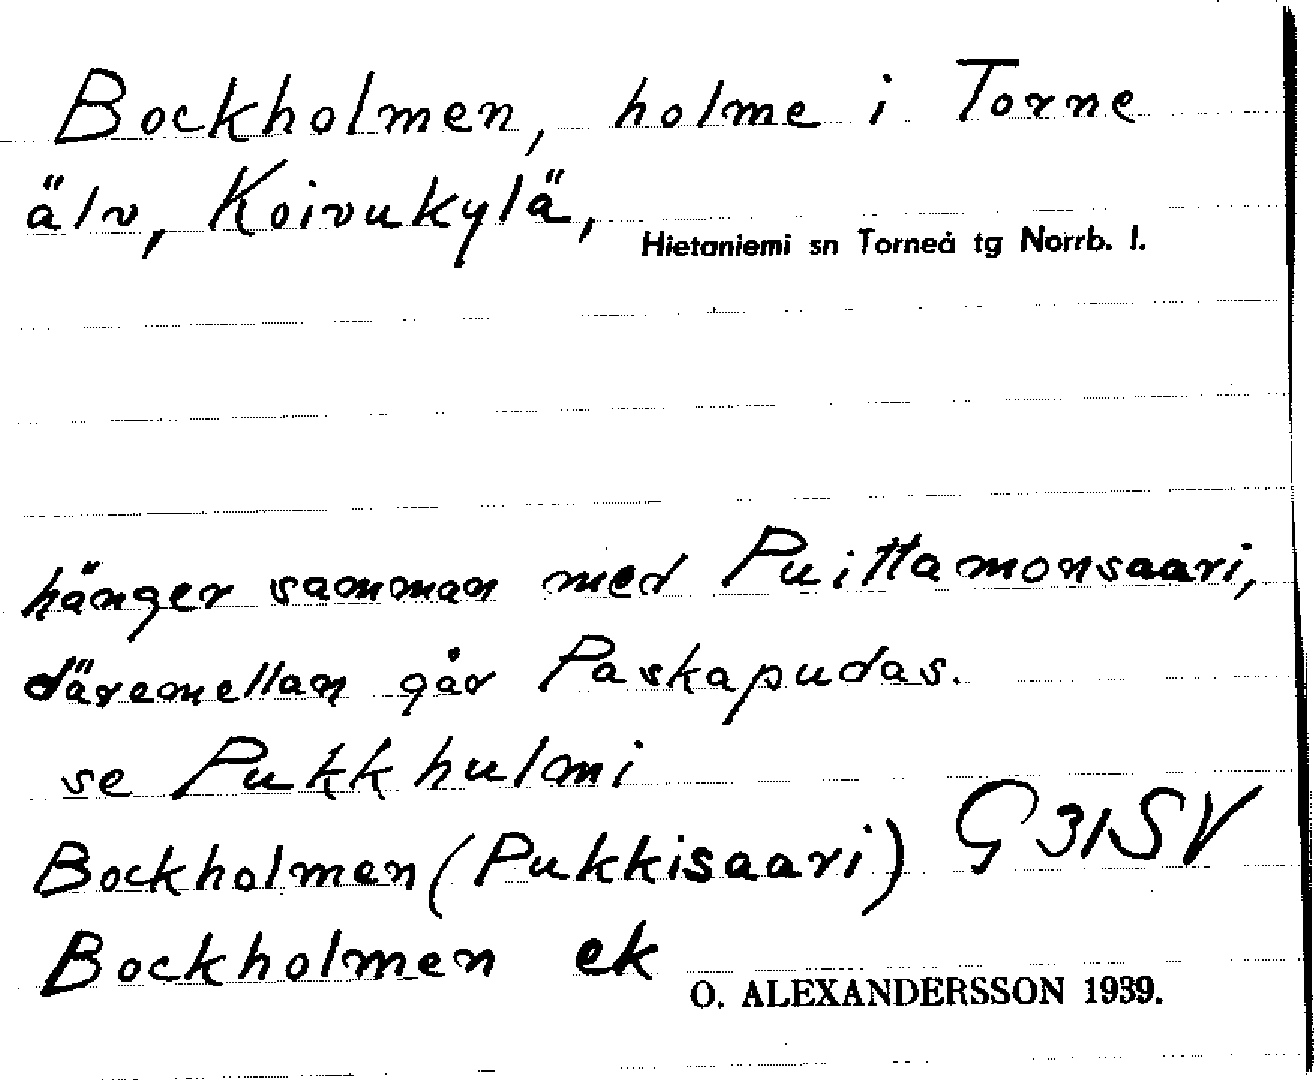 Bockholmen, holme i Torne
älv, Koivukylä,
Hietaniemi sn Torneå tg Norrb. l.
hänger samman med Puittamonsaari,
däremellan går Paskapudas.
se Pukkhulmi
Bockholmen (Pukkisaari) G31SV
Bockholmen ek
O. ALEXANDERSSON 1939.